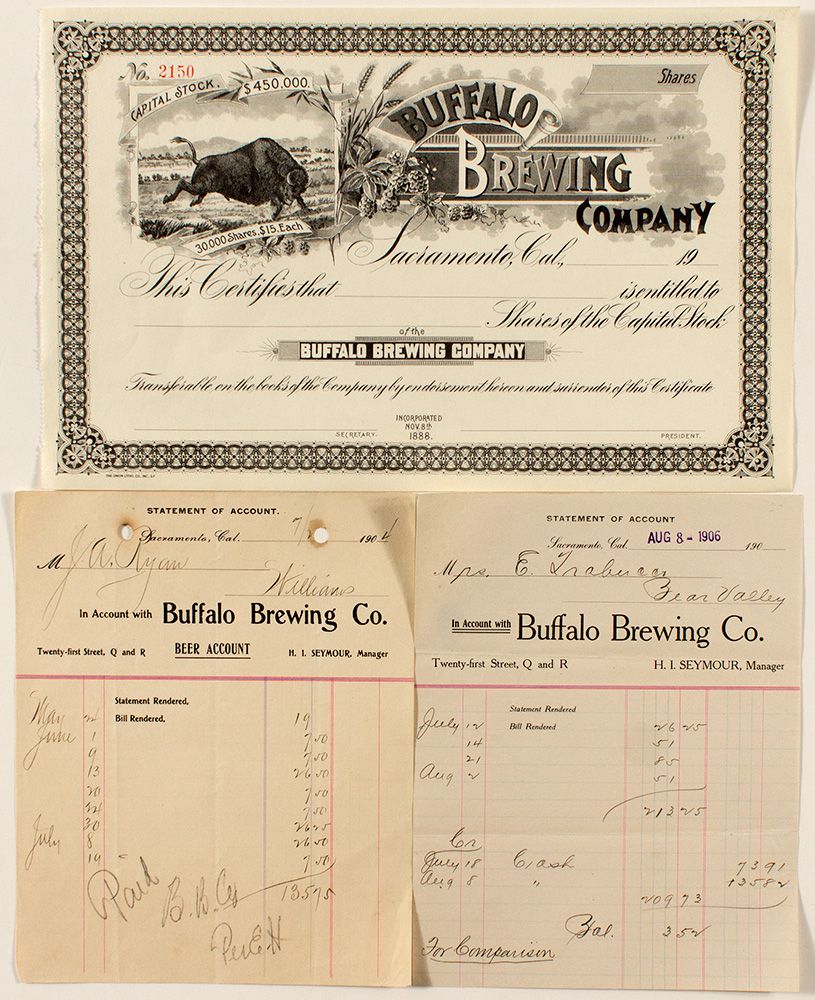 No. 2150
CAPITAL STOCK. $450,000.
Shares
BUFFALO
BREWING
COMPANY
30,000 Shares, $15. Each
Sacramento, Cal., 19
This Certifies that is entitled to
Shares of the Capital Stock
of the
BUFFALO BREWING COMPANY
Transferable on the books of the Company by endorsement hereon and surrender of this Certificate
INCORPORATED
NOV. 8th
1888.
SECRETARY. PRESIDENT.
THE UNION LITHO. CO., INC., S.F.
STATEMENT OF ACCOUNT.
Sacramento, Cal. 7/ 1904
M J. A. Ryan
Williams
In Account with Buffalo Brewing Co.
Twenty-first Street, Q and R BEER ACCOUNT H. I. SEYMOUR, Manager
Statement Rendered,
May 24 Bill Rendered, 19
June 1 7 50
9 7 50
13 26 50
20 7 50
24 7 50
30 26 25
July 8 26 50
19 7 50
135 75
Paid
B. B. Co
Per E H
STATEMENT OF ACCOUNT
Sacramento, Cal. AUG 8 - 1906 190
Mrs. E. Trabucco
Bear Valley
In Account with Buffalo Brewing Co.
Twenty-first Street, Q and R H. I. SEYMOUR, Manager
Statement Rendered
July 12 Bill Rendered 26 25
14 51
21 85
Aug 2 51
213 25
Cr
July 18 Cash 73 91
Aug 8 " 135 82
209 73
Bal. 3 52
For Comparison